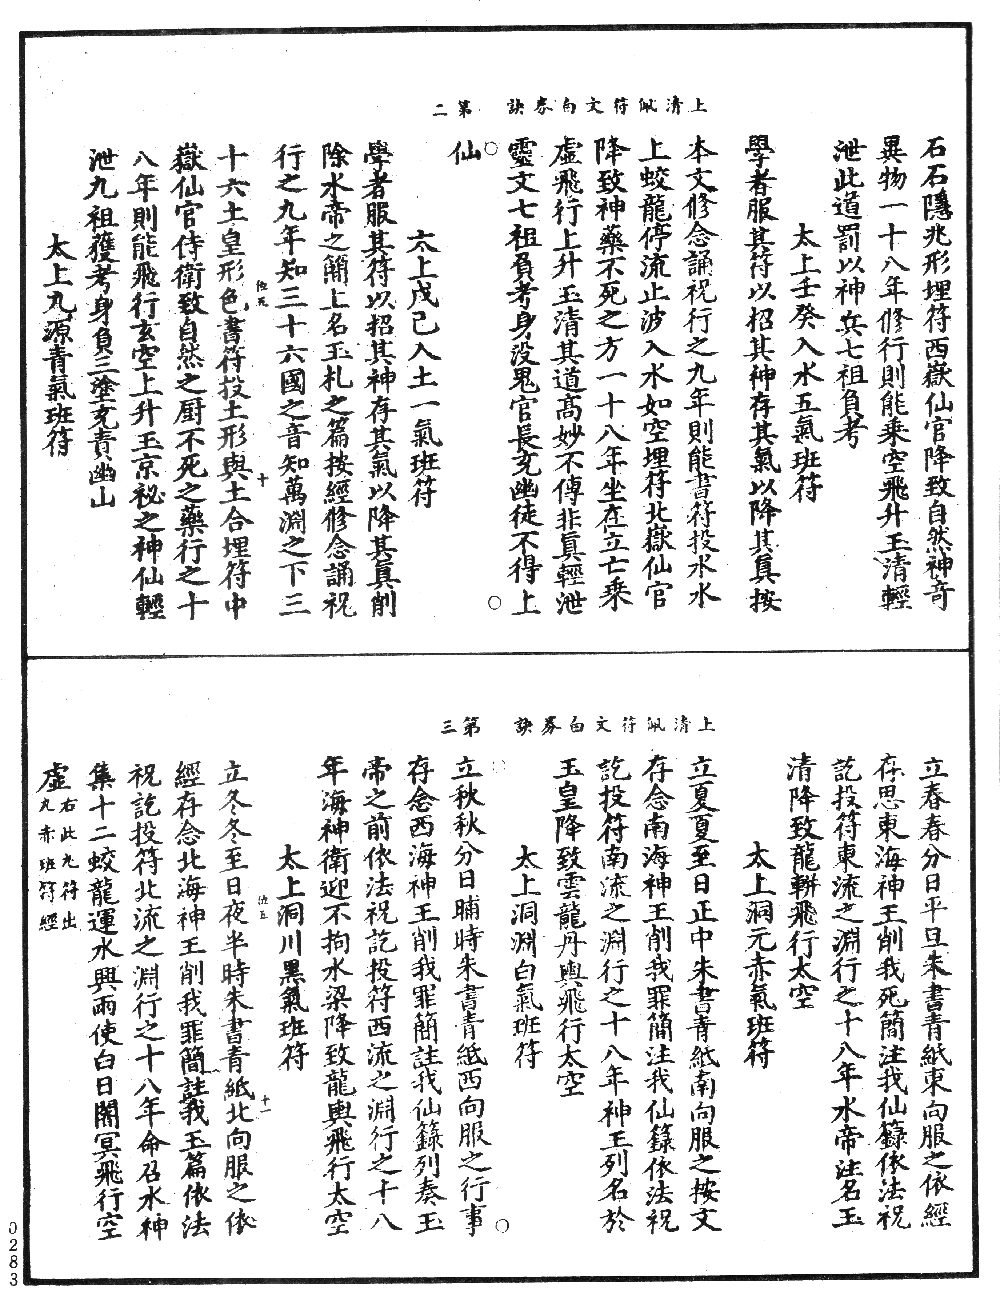 上清佩符文白券訣 第二
石石隱兆形埋符西嶽仙官降致自然神奇
異物一十八年修行則能乘空飛升玉清輕
泄此道罰以神兵七祖負考
太上壬癸入水五氣班符
學者服其符以招其神存其氣以降其真按
本文修念誦祝行之九年則能書符投水水
上蛟龍停流止波入水如空埋符北嶽仙官
降致神藥不死之方一十八年坐在立亡乘
虛飛行上升玉清其道高妙不傳非真輕泄
靈文七祖負考身没鬼官長充幽徒不得上
仙
太上戊己入土一氣班符
學者服其符以招其神存其氣以降其真削
除水帝之簡上名玉札之篇按經修念誦祝
行之九年知三十六國之音知萬淵之下三
十
十六土皇形色書符投土形與土合埋符中
嶽仙官侍衛致自然之厨不死之藥行之十
八年則能飛行玄空上升玉京祕之神仙輕
泄九祖獲考身負三塗充責幽山
太上九源青氣班符
上清佩符文白券訣 第三
立春春分日平旦朱書青紙東向服之依經
存思東海神王削我死簡注我仙籙依法祝
訖投符東流之淵行之十八年水帝注名玉
清降致龍軿飛行太空
太上洞元赤氣班符
立夏夏至日正中朱書青紙南向服之按文
存念南海神王削我罪簡注我仙籙依法祝
訖投符南流之淵行之十八年神王列名於
玉皇降致雲龍丹輿飛行太空
太上洞淵白氣班符
立秋秋分日晡時朱書青紙西向服之行事
存念西海神王削我罪簡註我仙籙列奏玉
帝之前依法祝訖投符西流之淵行之十八
年海神衛迎不拘水梁降致龍輿飛行太空
太上洞川黑氣班符
十一
立冬冬至日夜半時朱書青紙北向服之依
經存念北海神王削我罪簡註我玉篇依法
祝訖投符北流之淵行之十八年命召水神
集十二蛟龍運水興雨使白日闇冥飛行空
虛
右此九符出
九赤班符經
0283